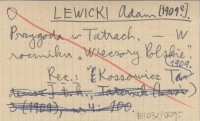 LEWICKI Adam (1909?)
Przygoda w Tatrach. — W
roczniku "Wieczory Polskie"
1909.
Rec.: "Ł Kossowicz
3 (1909), nr 4: 100.